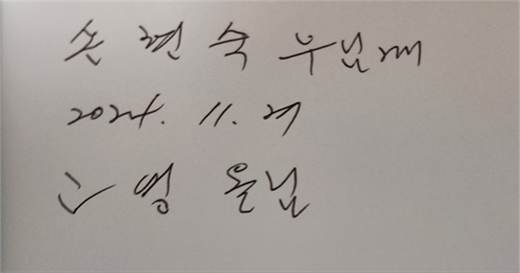 손 현 숙 부님께
2024. 11. 27
영 올림